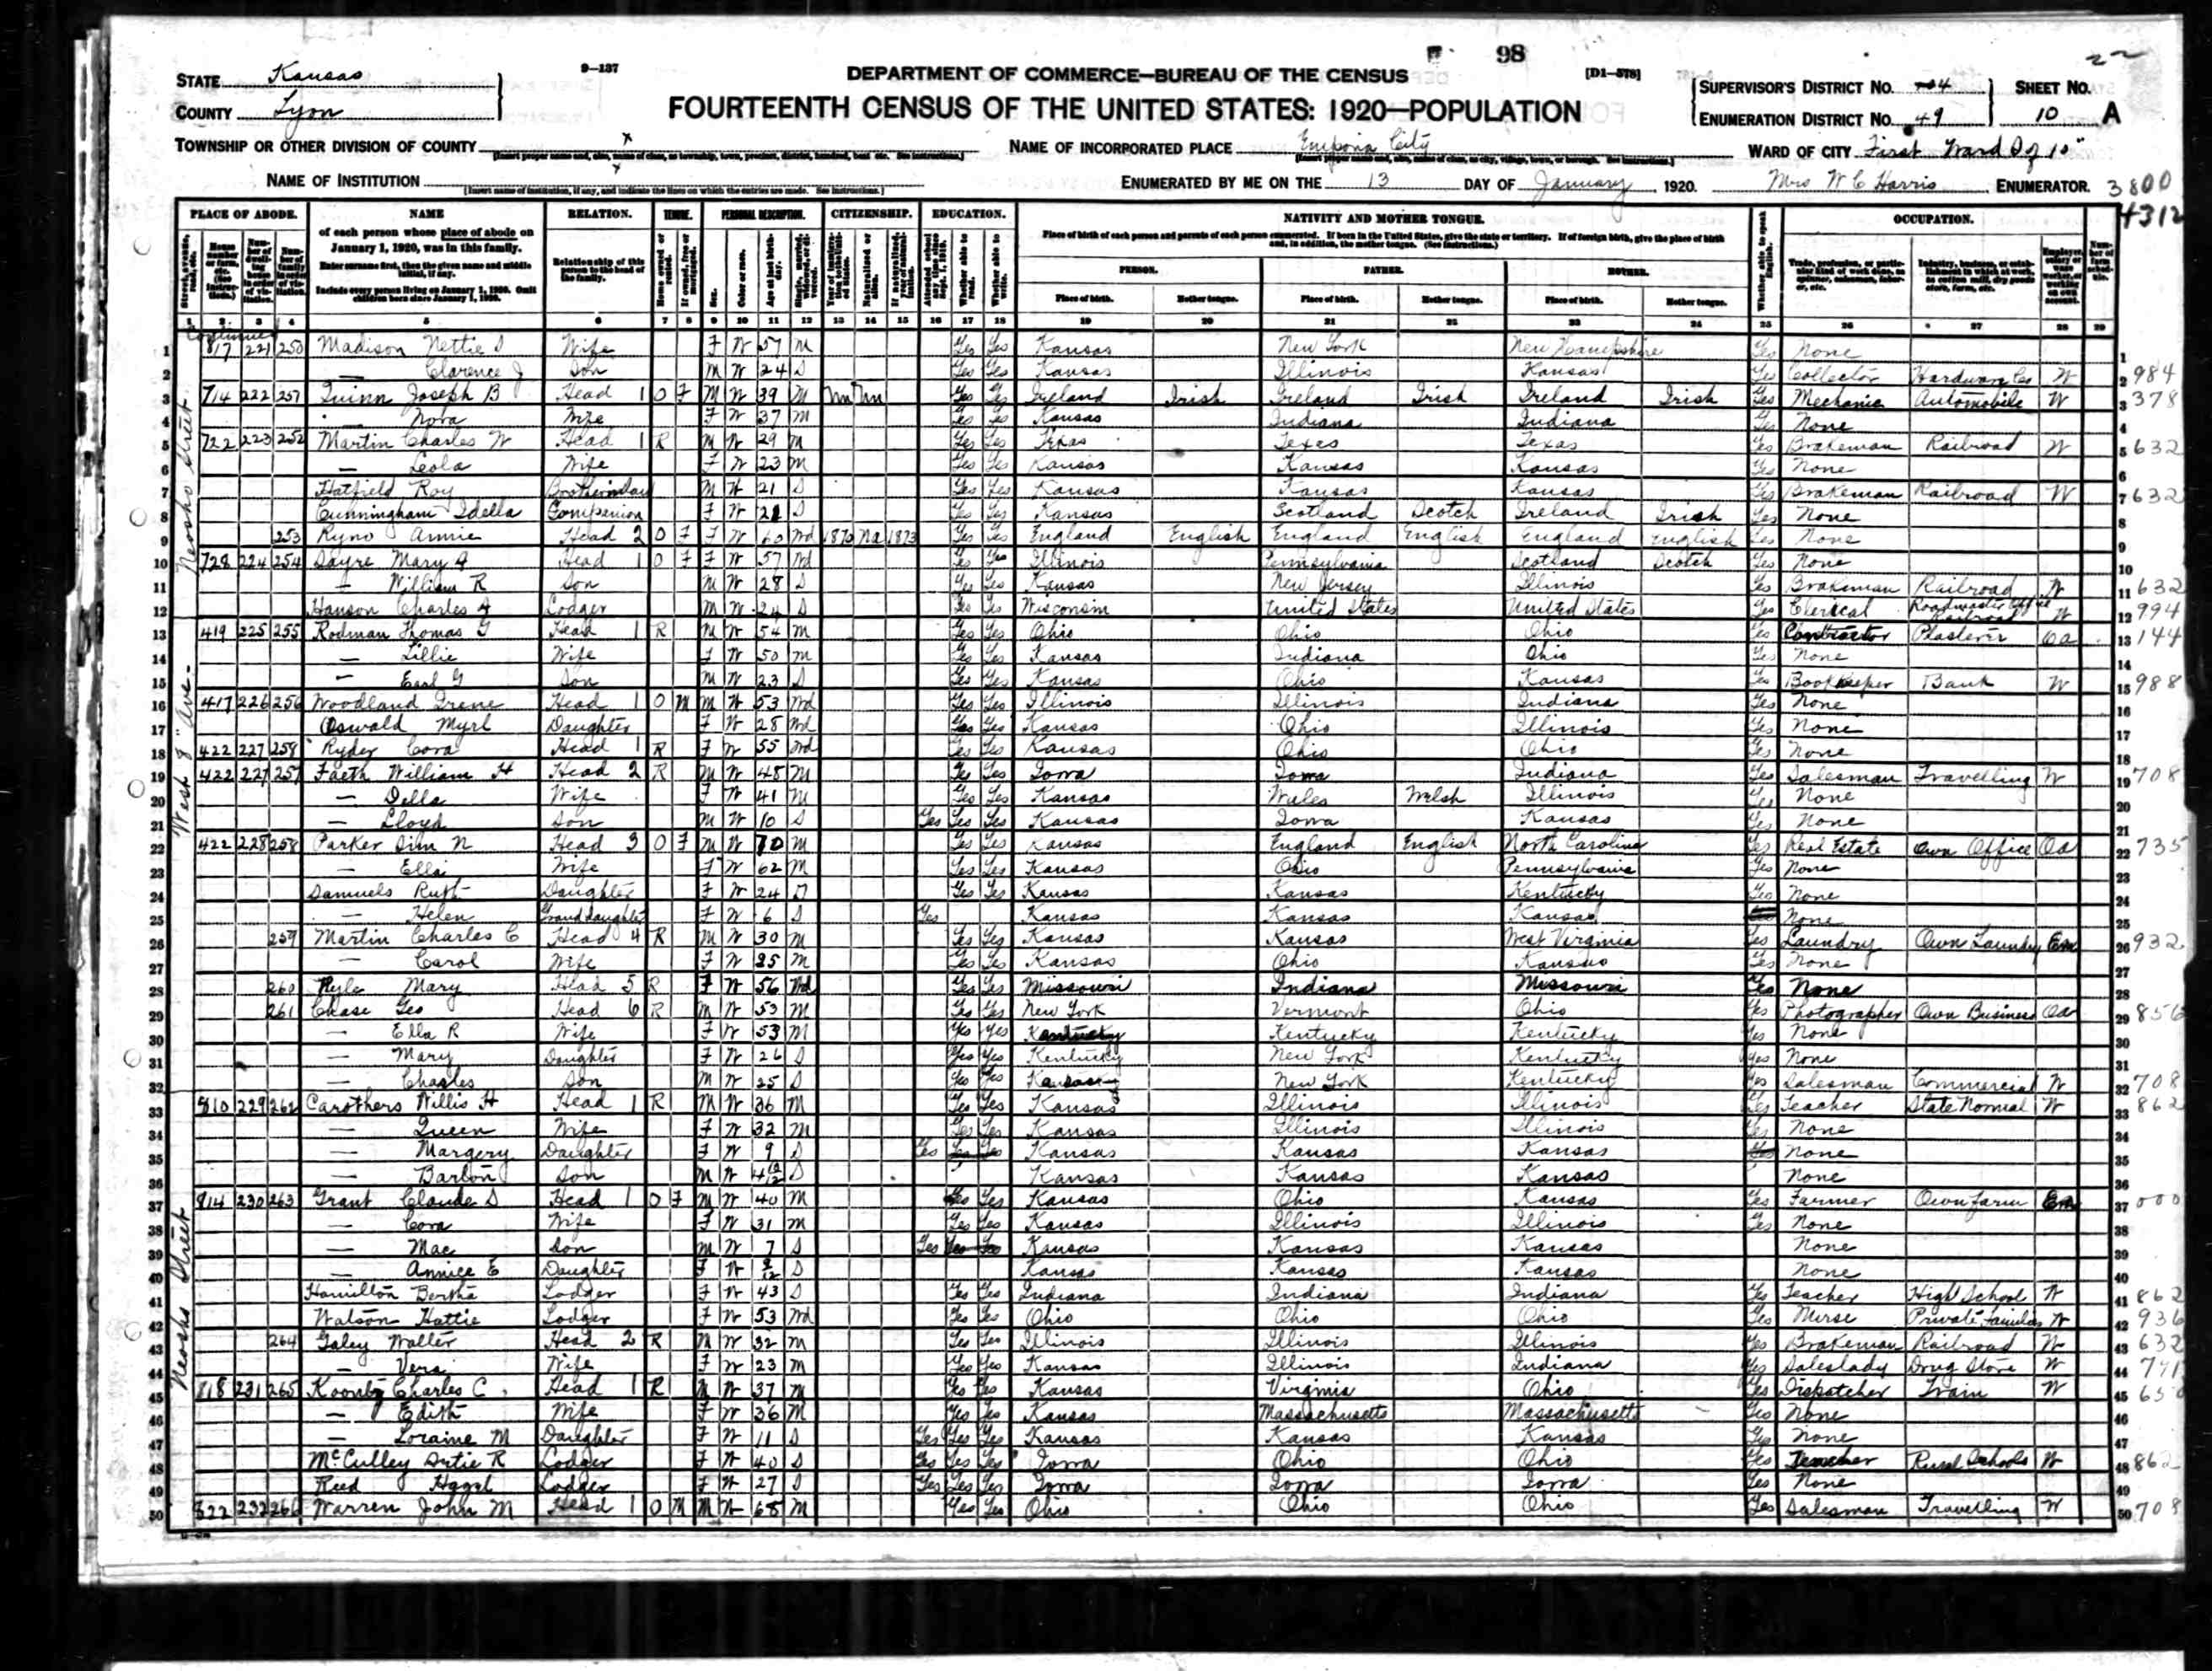 98
9—137
DEPARTMENT OF COMMERCE—BUREAU OF THE CENSUS
[D1-578]
STATE Kansas
COUNTY Lyon
FOURTEENTH CENSUS OF THE UNITED STATES: 1920—POPULATION
SUPERVISOR'S DISTRICT No. 4
ENUMERATION DISTRICT No. 49
SHEET No. 10 A
TOWNSHIP OR OTHER DIVISION OF COUNTY x
NAME OF INCORPORATED PLACE Emporia City
WARD OF CITY First Ward
NAME OF INSTITUTION x
ENUMERATED BY ME ON THE 13 DAY OF January, 1920. Mrs W C Harris ENUMERATOR.
3800
4312
PLACE OF ABODE. NAME RELATION. TENURE. PERSONAL DESCRIPTION. CITIZENSHIP. EDUCATION. NATIVITY AND MOTHER TONGUE. OCCUPATION.
of each person whose place of abode on January 1, 1920, was in this family.
Enter surname first, then the given name and middle initial, if any.
Include every person living on January 1, 1920. Omit children born since January 1, 1920.
Relationship of this person to the head of the family.
Place of birth of each person and parents of each person enumerated. If born in the United States, give the state or territory. If of foreign birth, give the place of birth and, in addition, the mother tongue. (See Instructions.)
PERSON. FATHER. MOTHER.
Place of birth. Mother tongue. Place of birth. Mother tongue. Place of birth. Mother tongue.
1 2 3 4 5 6 7 8 9 10 11 12 13 14 15 16 17 18 19 20 21 22 23 24 25 26 27 28 29
Neosho Street
1 817 221 250 Madison Nettie Wife F W 57 M Yes Yes Kansas New York New Hampshire Yes None 1
2 — Clarence J Son M W 24 S Yes Yes Kansas Illinois Kansas Yes Collector Hardware Co W 2 984
3 714 222 251 Quinn Joseph B Head 1 O F M W 39 M Un Un Yes Yes Ireland Irish Ireland Irish Ireland Irish Yes Mechanic Automobile W 3 378
4 — Nora Wife F W 37 M Yes Yes Kansas Indiana Indiana Yes None 4
5 722 223 252 Martin Charles W Head 1 R M W 29 M Yes Yes Texas Texas Texas Yes Brakeman Railroad W 5 632
6 — Leola Wife F W 23 M Yes Yes Kansas Kansas Kansas Yes None 6
7 Hatfield Roy Brotherinlaw M W 21 S Yes Yes Kansas Kansas Kansas Yes Brakeman Railroad W 7 632
8 Cunningham Idella Companion F W 21 S Yes Yes Kansas Scotland Scotch Ireland Irish Yes None 8
9 253 Ryno Annie Head 2 O F F W 60 Wd 1870 Na 1873 Yes Yes England English England English England English Yes None 9
10 728 224 254 Sayre Mary A Head 1 O F F W 57 Wd Yes Yes Illinois Pennsylvania Scotland Scotch Yes None 10
11 — William R Son M W 28 S Yes Yes Kansas New Jersey Illinois Yes Brakeman Railroad W 11 632
12 Hanson Charles A Lodger M W 24 S Yes Yes Wisconsin United States United States Yes Clerical Roadmaster Office Railroad W 12 994
West 8" Ave
13 419 225 255 Rodman Thomas G Head 1 R M W 54 M Yes Yes Ohio Ohio Ohio Yes Contractor Plasterer Oa 13 144
14 — Lillie Wife F W 50 M Yes Yes Kansas Indiana Ohio Yes None 14
15 — Earl G Son M W 23 S Yes Yes Kansas Ohio Kansas Yes Bookkeeper Bank W 15 988
16 417 226 256 Woodland Irene Head 1 O M M W 53 Wd Yes Yes Illinois Illinois Indiana Yes None 16
17 Oswald Myrl Daughter F W 28 Wd Yes Yes Kansas Ohio Illinois Yes None 17
18 422 227 258 Ryder Cora Head 1 R F W 55 Wd Yes Yes Kansas Ohio Ohio Yes None 18
19 422 227 257 Faeth William H Head 2 R M W 48 M Yes Yes Iowa Iowa Indiana Yes Salesman Travelling W 19 708
20 — Della Wife F W 41 M Yes Yes Kansas Wales Welsh Illinois Yes None 20
21 — Lloyd Son M W 10 S Yes Yes Yes Kansas Iowa Kansas Yes None 21
22 422 228 258 Parker Sim N Head 3 O F M W 70 M Yes Yes Kansas England English North Carolina Yes Real Estate Own Office Oa 22 735
23 — Ella Wife F W 62 M Yes Yes Kansas Ohio Pennsylvania Yes None 23
24 Samuels Ruth Daughter F W 24 D Yes Yes Kansas Kansas Kentucky Yes None 24
25 — Helen Granddaughter F W 6 S Yes Kansas Kansas Kansas None 25
26 259 Martin Charles C Head 4 R M W 30 M Yes Yes Kansas Kansas West Virginia Yes Laundry Own Laundry Em 26 932
27 — Carol Wife F W 25 M Yes Yes Kansas Ohio Kansas Yes None 27
28 260 Kyle Mary Head 5 R F W 56 Wd Yes Yes Missouri Indiana Missouri Yes None 28
29 261 Chase Geo Head 6 R M W 53 M Yes Yes New York Vermont Ohio Yes Photographer Own Business Oa 29 856
30 — Ella R Wife F W 53 M Yes Yes Kentucky Kentucky Kentucky Yes None 30
31 — Mary Daughter F W 26 S Yes Yes Kentucky New York Kentucky Yes None 31
32 — Charles Son M W 25 S Yes Yes New York Kentucky Yes Salesman Commercial W 32 708
Neosho Street
33 810 229 262 Carothers Willis H Head 1 R M W 36 M Yes Yes Kansas Illinois Illinois Yes Teacher State Normal W 33 862
34 — Queen Wife F W 32 M Yes Yes Kansas Illinois Illinois Yes None 34
35 — Margery Daughter F W 9 S Yes Kansas Kansas Kansas Yes None 35
36 — Barton Son M W 4 S Kansas Kansas Kansas None 36
37 814 230 263 Grant Claude S Head 1 O F M W 40 M Yes Yes Kansas Ohio Kansas Yes Farmer Own farm Em 37 000
38 — Cora Wife F W 31 M Yes Yes Kansas Illinois Illinois Yes None 38
39 — Mac Son M W 7 S Yes Kansas Kansas Kansas None 39
40 — Annice E Daughter F W S Kansas Kansas Kansas None 40
41 Hamilton Bertha Lodger F W 43 S Yes Yes Indiana Indiana Indiana Yes Teacher High School W 41 862
42 Watson Hattie Lodger F W 53 Wd Yes Yes Ohio Ohio Ohio Yes Nurse Private Families W 42 936
43 264 Galey Walter Head 2 R M W 32 M Yes Yes Illinois Illinois Illinois Yes Brakeman Railroad W 43 632
44 — Vera Wife F W 23 M Yes Yes Kansas Illinois Indiana Yes Saleslady Drug Store W 44
45 818 231 265 Koontz Charles C Head 1 R M W 37 M Yes Yes Kansas Virginia Ohio Yes Dispatcher Train W 45 650
46 — Edith Wife F W 36 M Yes Yes Kansas Massachusetts Massachusetts Yes None 46
47 — Loraine M Daughter F W 11 S Yes Yes Yes Kansas Kansas Kansas Yes None 47
48 McCulley Artie R Lodger F W 40 S Yes Yes Yes Iowa Ohio Ohio Yes Teacher Rural Schools W 48 862
49 Reed Hazel Lodger F W 27 S Yes Yes Yes Iowa Iowa Iowa Yes None 49
50 822 232 266 Warren John M Head 1 O M M W 68 M Yes Yes Ohio Ohio Ohio Yes Salesman Travelling W 50 708